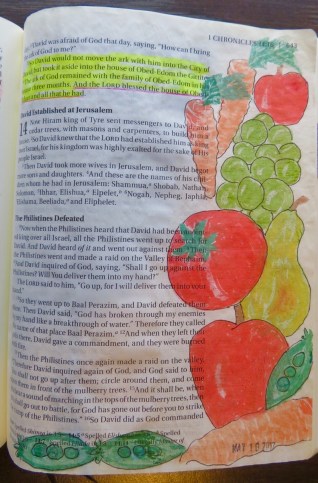 1 CHRONICLES
"David was afraid of God that day, saying, "How can I bring
ark of God to me?"
So David would not move the ark with him into the City of
but took it aside into the house of Obed-Edom the Gittite.
ark of God remained with the family of Obed-Edom in his
three months. And the LORD blessed the house of Obed-
and all that he had.
David Established at Jerusalem
14 Now Hiram king of Tyre sent messengers to David, and
cedar trees, with masons and carpenters, to build him a
So David knew that the LORD had established him as king
Israel, for his kingdom was highly exalted for the sake of His
people Israel.
Then David took more wives in Jerusalem, and David begot
more sons and daughters. And these are the names of his chil-
whom he had in Jerusalem: Shammua, Shobab, Nathan,
Ibhar, Elishua, Elpelet, Nogah, Nepheg, Japhia,
Elishama, Beeliada, and Eliphelet.
The Philistines Defeated
Now when the Philistines heard that David had been anointed
king over all Israel, all the Philistines went up to search for
David. And David heard of it and went out against them. Then
the Philistines went and made a raid on the Valley of
And David inquired of God, saying, "Shall I go up against the
Philistines? Will You deliver them into my hand?"
The LORD said to him, "Go up, for I will deliver them into your
So they went up to Baal Perazim, and David defeated them
Then David said, "God has broken through my enemies
hand like a breakthrough of water." Therefore they called
name of that place Baal Perazim. And when they left their
there, David gave a commandment, and they were burned
Then the Philistines once again made a raid on the valley.
Therefore David inquired again of God, and God said to him,
not go up after them; circle around them, and come
them in front of the mulberry trees. And it shall be, when
a sound of marching in the tops of the mulberry trees, then
go out to battle, for God has gone out before you to strike
of the Philistines." So David did as God commanded
14:5 Spelled
MAY 10